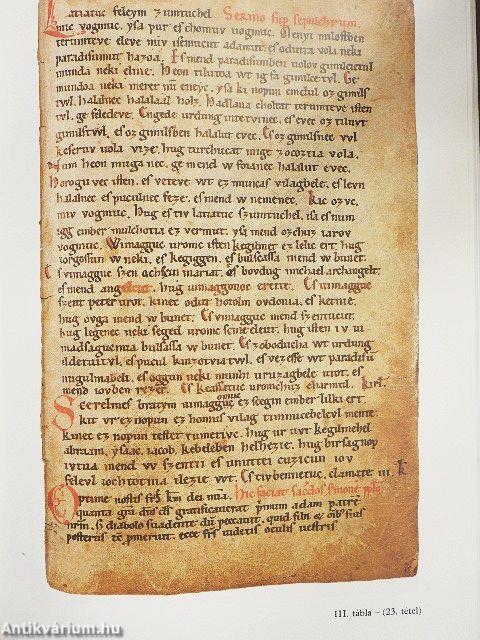 Latiatuc feleym zumtuchel Sermo sup sepulchrum.
mic vogmuc. ysa pur es chomuv uogmuc. Menyi milostben
terumteve eleve miv isemucut adamut. es odutta vola neki
paradisumut hazoa. Es mend paradisumben uolov gimilcictul
munda neki elnie. Heon tilutoa wt ig fa gimilce tvl. Ge
mundoa neki meret nu eneyc. ysa ki nopun emdul oz gimils
twl. halalnec halalaal holz. Hadlaua choltat terumteve isten
tvl. ge feledeve. Engede urdung intetvinec. es evec oz tiluvt
gimilstwl. es oz gimilsben halalut evec. Es oz gimilsnec vvl
keseruv uola vize. hug turchucat mige zocoztia vola.
Num heon muga nec. ge mend w foianec halalut evec.
Horogu vec isten. es veteve wt ez muncas vilagbele. es levn
halalnec es puculnec feze. es mend w nemenec. Kic ozvc.
miv vogmuc. Hug es tiv latiatuc szumtuchel. isa es num
igg ember mulchotia ez vermut. ysa mend ozchuz iarov
vogmuc. Wimagguc uromc isten kegilmet ez lelic ert. hug
iorgossun w neki. es kegiggen. es bulsassa mend w bunet.
Es vimagguc szen achscin mariat. es bovdug michael archangelt.
es mend angelcut. hug uimaggonoc erette. Es uimagguc
szent peter urot. kinec odut hotolm ovdonia. es ketnie.
hug ovga mend w bunet. Es vimagguc mend szentucut.
hug legenec neki seged uromc scine eleut. hug isten iv ui
madsagucmia bulsassa w bunet. Es zoboducha wt urdung
ildetuitvl. es pucul kinzotviatwl. es vezesse wt paradisu
nugulmabeli. es oggun neki munhi uruzagbele utot. es
mend iovben rezet. Es keassatuc uromchuz charmul. Kirl.
Scerelmes bratym uimagomuc ez scegin ember lilki ert.
kit vr ez nopun ez homus vilag timnucebelevl mente.
kinec ez nopun testet tumetivc. hug ur uvt kegilmehel
abraam. ysaac. iacob. kebeleben helhezie. hug birsagnop
ivtva mend w szentii es unuttei cuzicun iov
felevl iochtotnia ilezie wt. Es tivbennetuc. clamate iii. k
hic faciat
quanta primum adam patrem
diabolo suadente peccavit. quid sibi
videtis oculis vestris
III. tábla – (23. tétel)
Antikvárium.hu